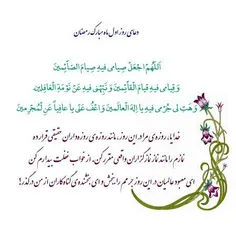 دعای روز اول ماه مبارک رمضان
اَللّهُمَّ اجْعَلْ صِیامی فیهِ صِیامَ الصّآئِمینَ
وَ قِیامی فیهِ قِیامَ الْقآئِمینَ وَ نَبِّهْنی فیهِ عَنْ نَوْمَةِ الْغافِلینَ
وَ هَبْ لی جُرْمی فیهِ یا اِلهَ الْعالَمینَ وَ اعْفُ عَنّی یا عافِیاً عَنِ الْمُجْرِمینَ
خدایا، روزه‌ی مرا در این روز، مانند روزه‌ی روزه‌داران حقیقی قرار ده
نمازم را مانند نماز نمازگزاران واقعی مقرر کن، از خواب غفلت بیدارم کن
ای معبود عالمیان در این روز جرمم را ببخش و ای بخشنده‌ی گناهکاران از من درگذر!